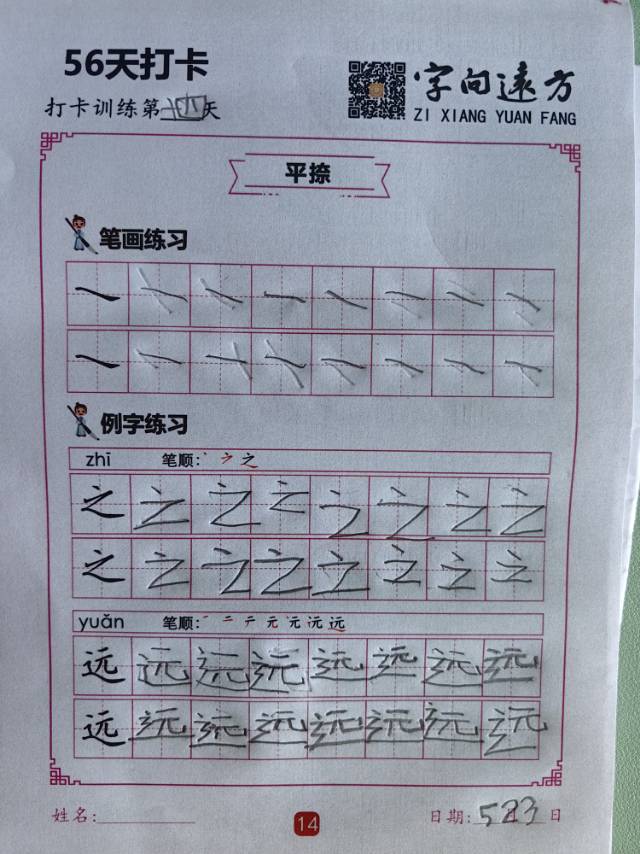 56天打卡
字向远方
ZI XIANG YUAN FANG
打卡训练第十四天
平捺
笔画练习
例字练习
zhī 笔顺: 丶 ㇇ 之
之 之 之 之 之 之 之 之
之 之 之 之 之 之 之 之
yuǎn 笔顺: 一 二 テ 元 远 远 远
远 远 远 远 远 远 远 远
远 远 远 远 远 远 远 远
姓名: 14 日期: 5月23日